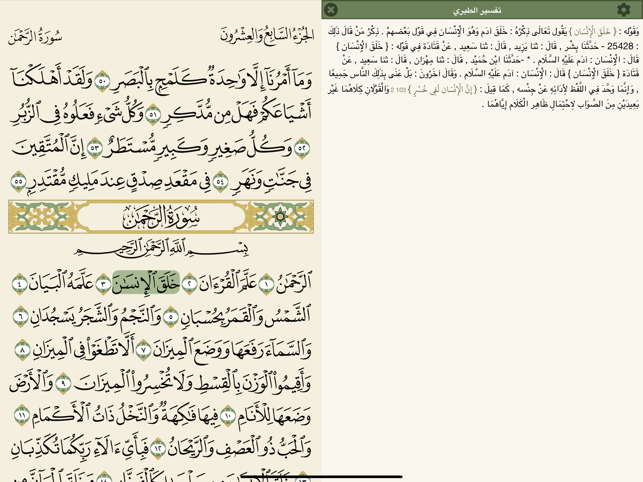 سُورَةُ الرَّحْمَٰن
الجُزْءُ السَّابِعُ وَالعِشْرُونَ
وَمَآ أَمْرُنَآ إِلَّا وَٰحِدَةٌ كَلَمْحٍۭ بِٱلْبَصَرِ ٥٠ وَلَقَدْ أَهْلَكْنَآ
أَشْيَاعَكُمْ فَهَلْ مِن مُّدَّكِرٍ ٥١ وَكُلُّ شَىْءٍ فَعَلُوهُ فِى ٱلزُّبُرِ
٥٢ وَكُلُّ صَغِيرٍ وَكَبِيرٍ مُّسْتَطَرٌ ٥٣ إِنَّ ٱلْمُتَّقِينَ
فِى جَنَّٰتٍ وَنَهَرٍ ٥٤ فِى مَقْعَدِ صِدْقٍ عِندَ مَلِيكٍ مُّقْتَدِرٍۭ ٥٥
سُورَةُ الرَّحْمَٰن
بِسْمِ ٱللَّهِ ٱلرَّحْمَٰنِ ٱلرَّحِيمِ
ٱلرَّحْمَٰنُ ١ عَلَّمَ ٱلْقُرْءَانَ ٢ خَلَقَ ٱلْإِنسَٰنَ ٣ عَلَّمَهُ ٱلْبَيَانَ ٤
ٱلشَّمْسُ وَٱلْقَمَرُ بِحُسْبَانٍ ٥ وَٱلنَّجْمُ وَٱلشَّجَرُ يَسْجُدَانِ ٦
وَٱلسَّمَآءَ رَفَعَهَا وَوَضَعَ ٱلْمِيزَانَ ٧ أَلَّا تَطْغَوْا۟ فِى ٱلْمِيزَانِ ٨
وَأَقِيمُوا۟ ٱلْوَزْنَ بِٱلْقِسْطِ وَلَا تُخْسِرُوا۟ ٱلْمِيزَانَ ٩ وَٱلْأَرْضَ
وَضَعَهَا لِلْأَنَامِ ١٠ فِيهَا فَٰكِهَةٌ وَٱلنَّخْلُ ذَاتُ ٱلْأَكْمَامِ ١١
وَٱلْحَبُّ ذُو ٱلْعَصْفِ وَٱلرَّيْحَانُ ١٢ فَبِأَىِّ ءَالَآءِ رَبِّكُمَا تُكَذِّبَانِ
تفسير الطبري
وَقَوْله : { خَلَقَ الْإِنْسَان } يَقُول تَعَالَى ذِكْرُهُ : خَلَقَ آدَم وَهُوَ الْإِنْسَان فِي قَوْل بَعْضهمْ . ذِكْر مَنْ قَالَ ذَلِكَ
: 25428 - حَدَّثَنَا بِشْر , قَالَ : ثنا يَزِيد , قَالَ : ثنا سَعِيد , عَنْ قَتَادَة فِي قَوْله : { خَلَقَ الْإِنْسَان }
قَالَ : الْإِنْسَان : آدَم عَلَيْهِ السَّلَام . * -حَدَّثَنَا ابْن حُمَيْد , قَالَ : ثنا مِهْرَان , قَالَ : ثنا سَعِيد , عَنْ
قَتَادَة { خَلَقَ الْإِنْسَان } قَالَ : الْإِنْسَان : آدَم عَلَيْهِ السَّلَام . وَقَالَ آخَرُونَ : بَلْ عَنَى بِذَلِكَ النَّاس جَمِيعًا
, وَإِنَّمَا وَحَّدَ فِي اللَّفْظ لِأَدَائِهِ عَنْ جِنْسه , كَمَا قِيلَ : { إِنَّ الْإِنْسَان لَفِي خُسْر } 103 2 وَالْقَوْلَانِ كِلَاهُمَا غَيْر
بَعِيدَيْنِ مِنَ الصَّوَاب لِاحْتِمَالِ ظَاهِر الْكَلَام إِيَّاهُمَا .